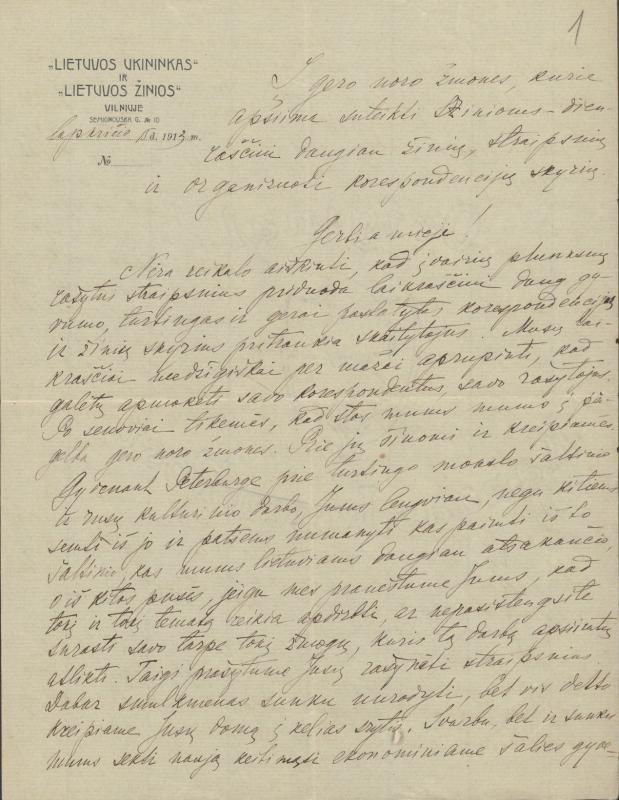 1
„LIETUVOS UKININKAS“
IR
„LIETUVOS ŽINIOS“
VILNIUJE
SEMIONOUSKA G. № 10
lapkričio d. 1913 m.
№
Iš gero noro žmones, kurie
apsiima suteikti Žinioms - dien-
raščiui daugiau žinių, straipsnių
ir organizuoti korespondencijų skyrių.
Gerbiamieji!
Nėra reikalo aiškinti, kad įvairių plunksnų
rašytus straipsnius priduoda laikraščiui daug gy-
vumo, turtingas ir gerai pastatytas korespondencijų
ir žinių skyrius pritraukia skaitytojus. Musų lai-
kraščiai medžiagiškai per mažai aprupinti, kad
galėtų apmokėti savo korespondentus, savo rašytojus.
Po senoviai tikėmės, kad stos mums mums į pa-
gelbą gero noro žmonės. Prie jų šiuomi ir kreipiamės.
Gyvenant Peterburge prie turtingo mokslo šaltinio
ir rusų kulturinio darbo, Jums lengviau, negu kitiems
semti iš jo ir patiems numanyti kas paimti iš to
šaltinio, kas mums lietuviams daugiau atsakančio,
o iš kitos pusės, jeigu mes praneštume Jums, kad
tokį ir tokį tematą reikia apdirbti, ar nepasistengsite
surasti savo tarpe tokį žmogų, kuris tą darbą apsiimtų
atlikti. Taigi prašytume Jusų rašinėti straipsnius.
Dabar smulkmenas sunku nurodyti, bet vis dėlto
kreipiame Jusų domą į kelias sritis. Svarbu, bet ir sunku
mums sekti naują keitimąsi ekonominiame šalies gyve-